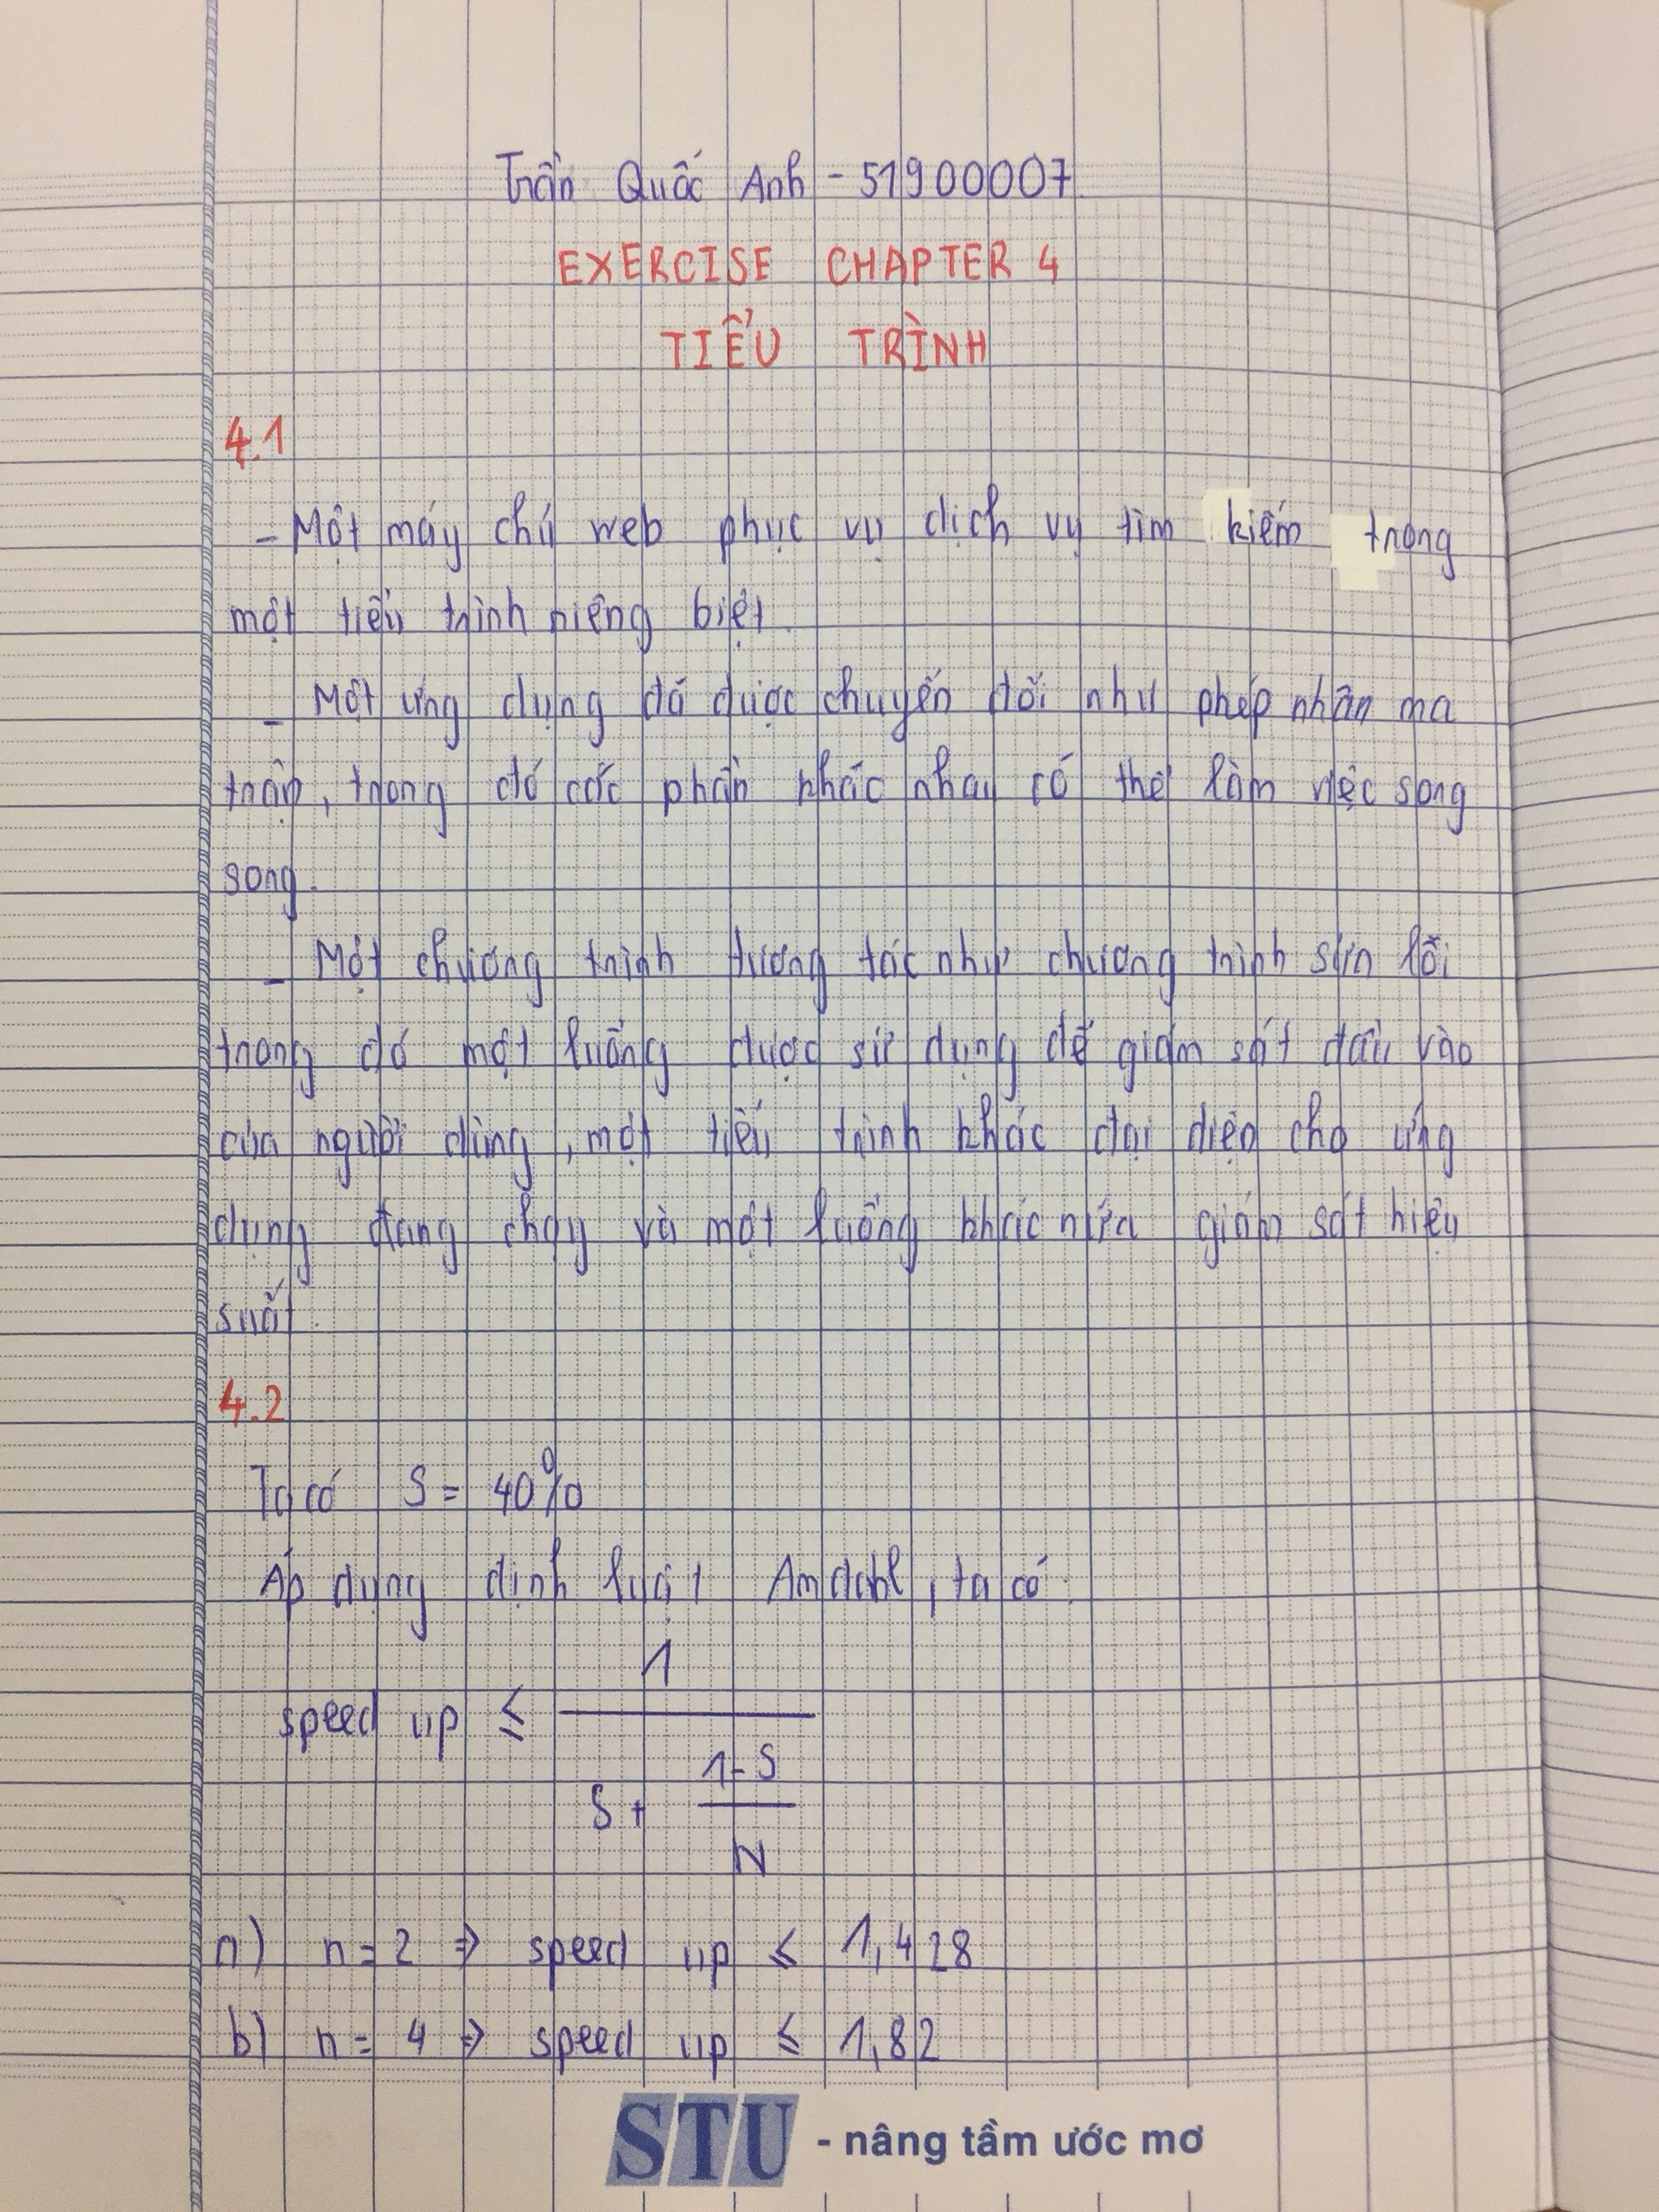 Trần Quốc Anh - 51900007
EXERCISE CHAPTER 4
TIỂU TRÌNH
4.1
- Một máy chủ web phục vụ dịch vụ tìm kiếm trong
một tiểu trình riêng biệt.
- Một ứng dụng đã được chuyển đổi như phép nhân ma
trận, trong đó các phần khác nhau có thể làm việc song
song.
- Một chương trình tương tác như chương trình sửa lỗi
trong đó một luồng được sử dụng để giám sát đầu vào
của người dùng, một tiểu trình khác đại diện cho ứng
dụng đang chạy và một luồng khác nữa giám sát hiệu
suất.
4.2
Ta có S = 40%
Áp dụng định luật Amdahl, ta có
speed up ≤ 1 / (S + (1-S)/N)
a) n = 2 => speed up ≤ 1,428
b) n = 4 => speed up ≤ 1,82
STU - nâng tầm ước mơ